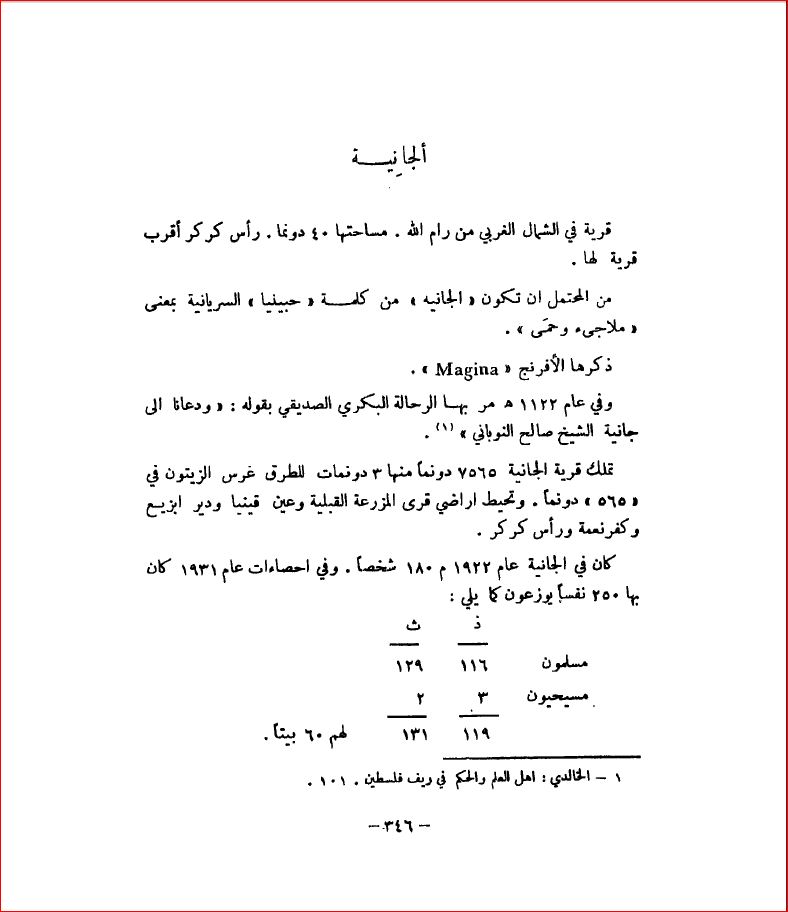 ألجانِيـــة
قرية في الشمال الغربي من رام الله . مساحتها ٤٠ دونما . رأس كركر أقرب
قرية لها .
من المحتمل ان تكون « الجانيه » من كلمـــة « حبينيا » السريانية بمعنى
« ملاجىء وحمَى » .
ذكرها الأفرنج « Magina » .
وفي عام ١١٢٢ ھ مر بهـا الرحالة البكري الصديقي بقوله : « ودعانا الى
جانية الشيخ صالح النوباني » (١) .
تملك قرية الجانية ٧٥٦٥ دونماً منها ٣ دونمات للطرق غرس الزيتون في
« ٥٦٥ » دونماً . وتحيط اراضي قرى المزرعة القبلية وعين قينيا ودير ابزيـع
وكفرنعمة ورأس كركر .
كان في الجانية عام ١٩٢٢ م ١٨٠ شخصاً . وفي احصاءات عام ١٩٣١ كان
بها ٢٥٠ نفساً يوزعون كما يلي :
ذ ث
مسلمون ١١٦ ١٢٩
مسيحيون ٣ ٢
١١٩ ١٣١ لهم ٦٠ بيتاً .
١ – الخالدي : اهل العلم والحكم في ريف فلسطين . ١٠١ .
– ٣٤٦ –